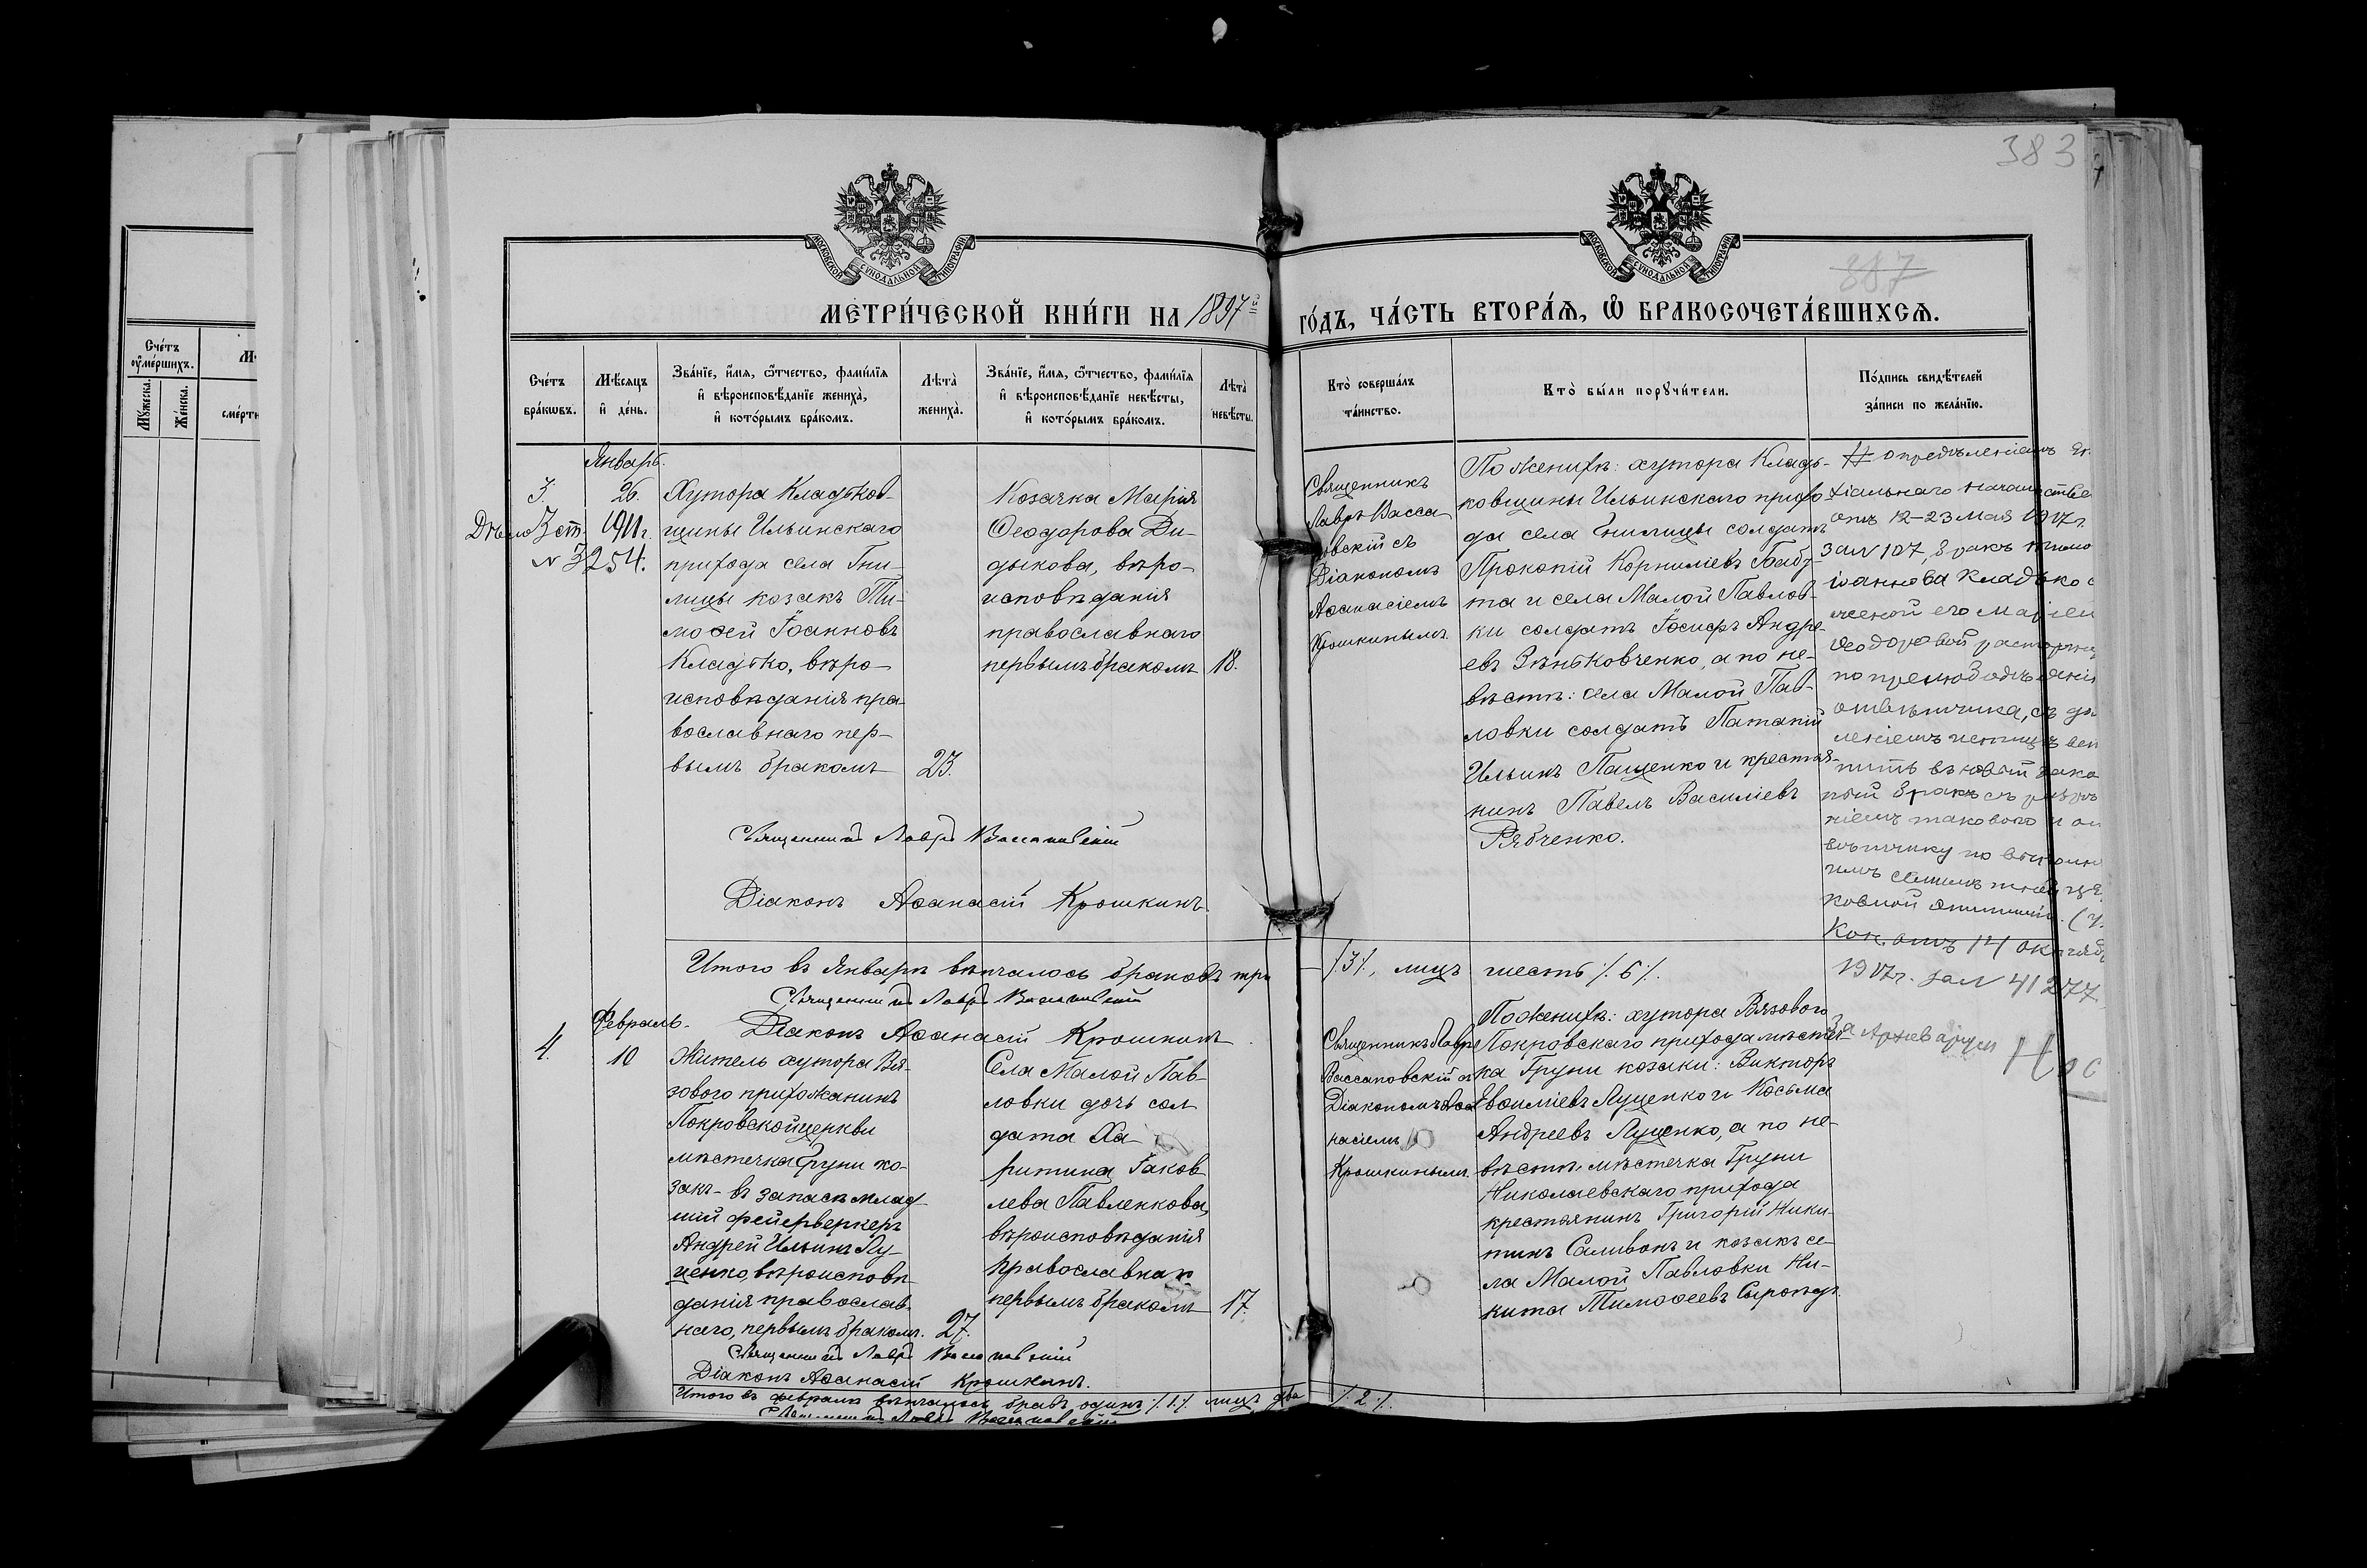 383
387
МОСКОВСКОЙ СѴНОДАЛЬНОЙ ТИПОГРАФІИ
МОСКОВСКОЙ СѴНОДАЛЬНОЙ ТИПОГРАФІИ
МЕТРИ́ЧЕСКОЙ КНИ́ГИ НА 1897й
ГО́ДЪ, ЧА́СТЬ ВТОРА́Я, Ѽ БРАКОСОЧЕТА́ВШИХСЯ.
Сче́тъ ᲂу҆ме́ршихъ.
Мꙋ́жеска.
Же́нска.
Сче́тъ бра́кѡвъ.
Мѣ́сяцъ и҆ де́нь.
Зва́нїе, и҆́мя, ѻ҆́тчество, фами́лїя
и҆ вѣроисповѣ́данїе жениха̀,
и҆ кото́рымъ бра́комъ.
Лѣта̀ жениха̀.
Зва́нїе, и҆́мя, ѻ҆́тчество, фами́лїя
и҆ вѣроисповѣ́данїе невѣ́сты,
и҆ кото́рымъ бра́комъ.
Лѣта̀ невѣ́сты.
Кто̀ соверша́лъ та́инство.
Кто̀ бы́ли порꙋчи́тели.
По́дпись свидѣ́телей
за́писи по жела́нїю.
Январь.
3.
26.
Дѣло 3 ст. 1911 г.
№ 3254.
Хутора Кладьков-
щины Ильинскаго
прихода села Гни-
лицы козакъ Ти-
моѳей Іоанновъ
Кладько, вѣро-
исповѣданія пра-
вославнаго пер-
вымъ бракомъ
23.
Козачка Марія
Ѳеодорова Ди-
дыкова, вѣро-
исповѣданія
православнаго
первымъ бракомъ
18.
Священникъ
Лавръ Васса-
новскій съ
Діакономъ
Аѳанасіемъ
Крошкинымъ.
По женихѣ: хутора Кладь-
ковщины Ильинскаго прихо-
да села Гнилицы солдатъ
Прокопій Корниліевъ Бабу-
та и села Малой Павлов-
ки солдатъ Іосифъ Андре-
евъ Зѣньковченко, а по не-
вѣстѣ: села Малой Пав-
ловки солдатъ Патапій
Ильинъ Пащенко и крестья-
нинъ Павелъ Василіевъ
Рябченко.
опредѣленіемъ
хіальнаго начальства
отъ 12-23 мая 1917 г.
за № 107, бракъ Тимо
Іоаннова Кладько с
женой его Маріей
Ѳеодоровой расторгну
по прелюбодѣянію
отвѣтчика, съ
леніемъ истицѣ
пить въ новый зако
ный бракъ съ
ніемъ такового и
вѣтчику по
ковной эпитиміи.
Кон. отъ 14 октяб
1917 г. за № 41277.
Священникъ Лавръ Вассановскій
Діаконъ Аѳанасій Крошкинъ.
Итого въ Январѣ вѣнчалось браковъ три
/.3/., лицъ шесть /.6/.
Священникъ Лавръ Вассановскій
Діаконъ Аѳанасій Крошкинъ.
За Архиваріуса
Февраль.
4.
10
Житель хутора Вя-
зового прихожанинъ
Покровской церкви
мѣстечка Груни ко-
закъ - въ запасѣ млад-
шій фейерверкеръ
Андрей Ильинъ Лу-
ценко, вѣроисповѣ-
данія православ-
наго, первымъ бракомъ.
27.
Села Малой Пав-
ловки дочь сол-
дата Ха-
ритина Іаков-
лева Павленкова,
вѣроисповѣданія
православнаго
первымъ бракомъ
17.
Священникъ Лавръ
Вассановскій съ
Діакономъ Аѳа-
насіемъ
Крошкинымъ.
По женихѣ: хутора Вязового
Покровскаго прихода мѣстеч-
ка Груни козаки: Викторъ
Евѳиміевъ Луценко и Косьма
Андреевъ Луценко, а по не-
вѣстѣ: мѣстечка Груни
Николаевскаго прихода
крестьянинъ Григорій Ники-
тинъ Саливонъ и козакъ се-
ла Малой Павловки Ни-
кита Тимоѳеевъ
Священникъ Лавръ Вассановскій
Діаконъ Аѳанасій Крошкинъ.
Итого въ февралѣ вѣнчалось бракъ одинъ /.1./. лицъ два /.2./.
Священникъ Лавръ Вассановскій